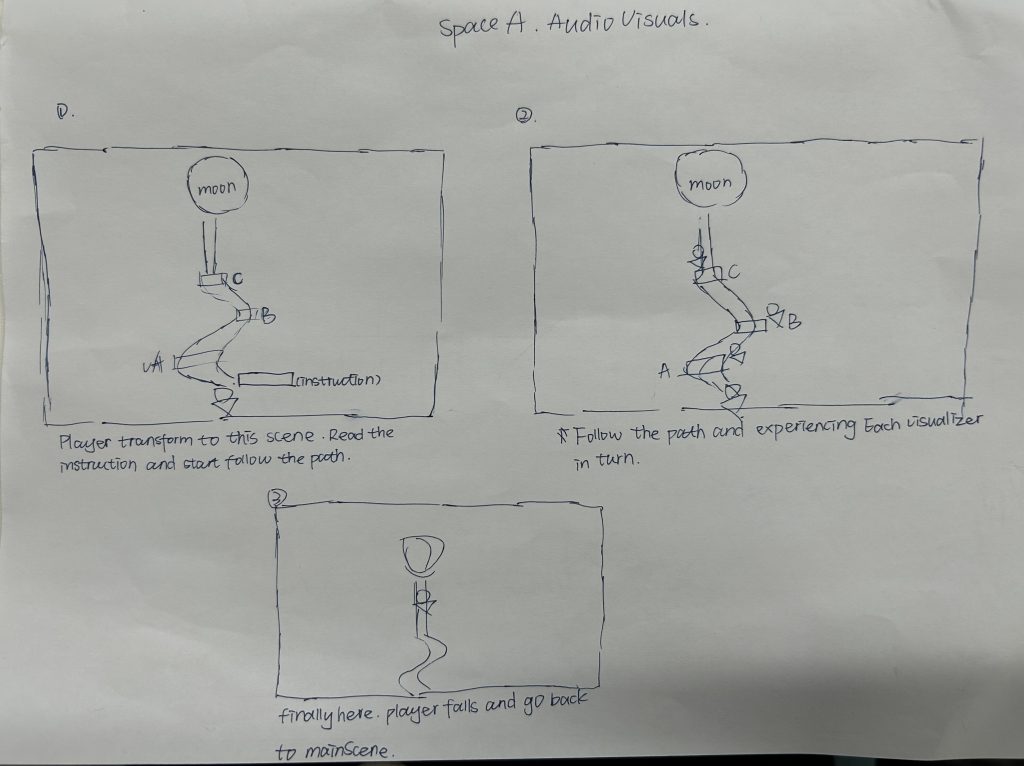 Space A. Audio Visuals.
①.
②.
moon
C
B
A
(instruction)
Player transform to this scene. Read the
instruction and start follow the path.
moon
C
B
A
Follow the path and experiencing Each visualizer
in turn.
③
finally here. player falls and go back
to mainscene.